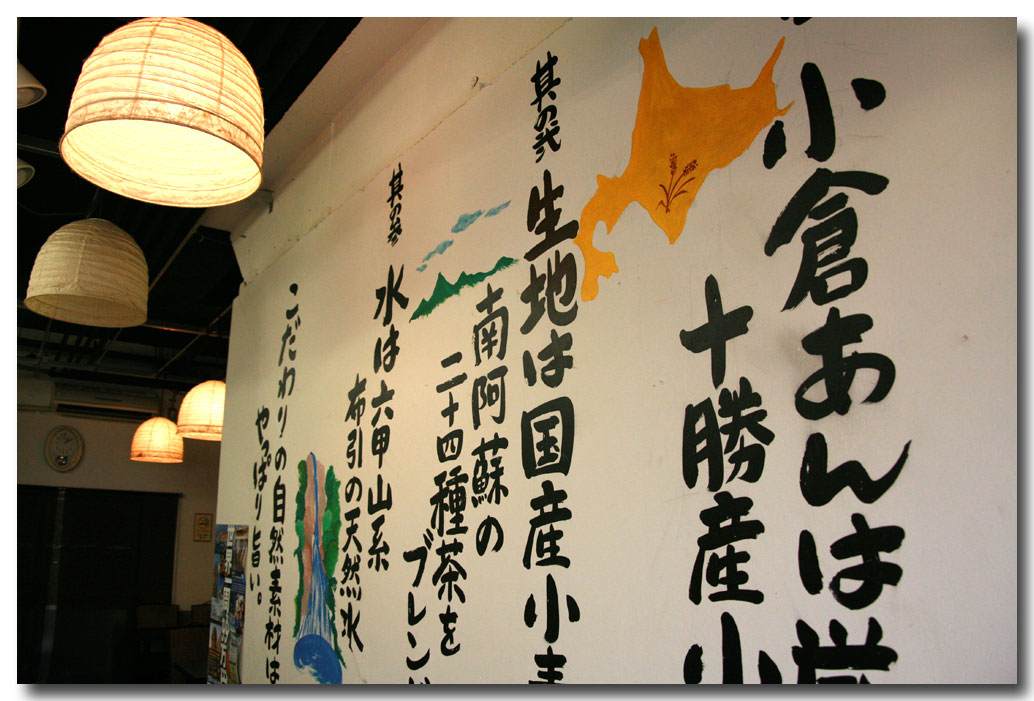 小倉あんは厳
十勝産小
其の弐
生地は国産小麦
南阿蘇の
二十四種茶を
ブレンド
其の参
水は六甲山系
布引の天然水
こだわりの自然素材は
やっぱり旨い。